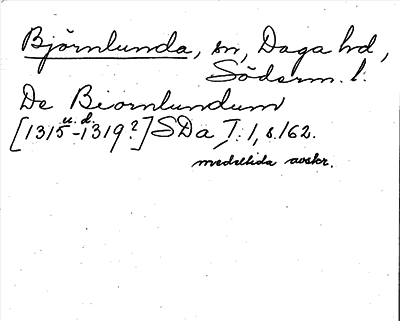 Björnlunda, sn, Daga hd,
Söderm. l.
De Biornlundum
u. d.
[1315-1319?] SDa I: 1, s. 162.
medeltida avskr.